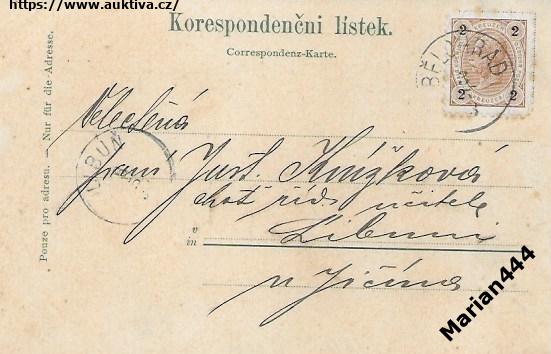 https://www.auktiva.cz/
Korespondenčni lístek.
Correspondenz-Karte.
Pouze pro adresu. — Nur für die Adresse.
2 2
2 2
BĚLOHRAD
LIBUŇ
Velectěná
paní Just. Knížková
choť říd. učitele
v
in
Libuni
u Jičína
Marian444